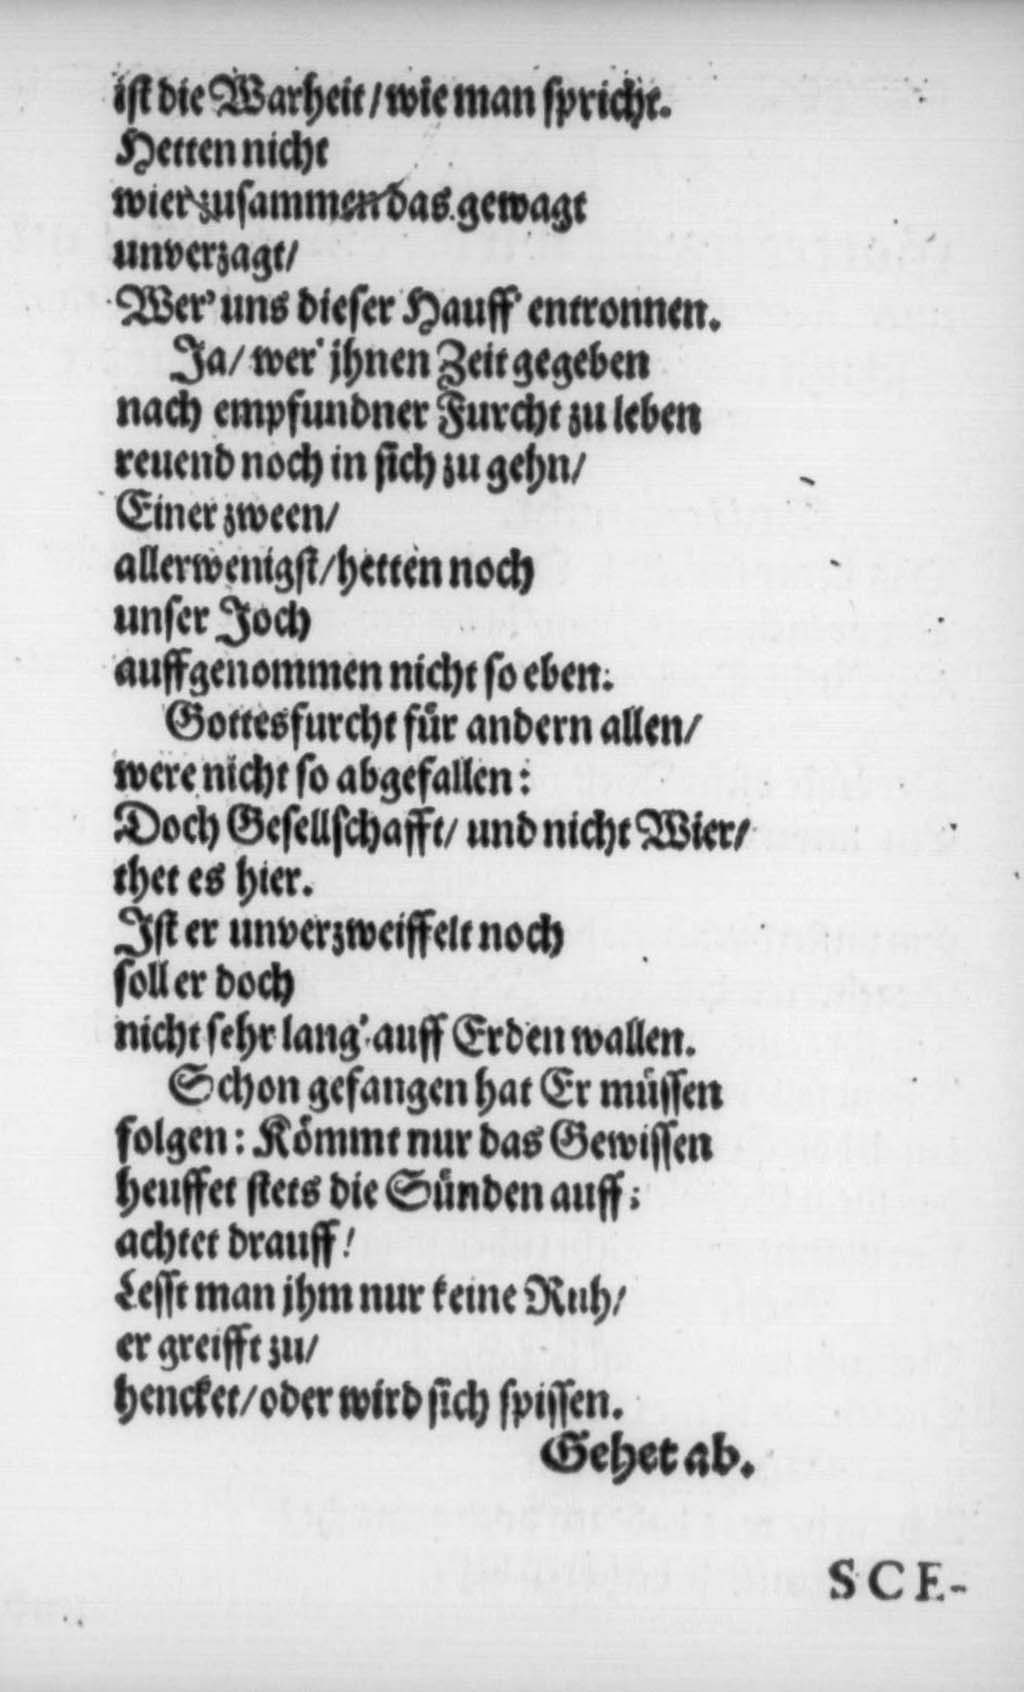 ist die Warheit / wie man spricht.
Hetten nicht
wier zusammen das gewagt
unverzagt /
Wer' uns dieser Hauff' entronnen.
Ja / wer' jhnen Zeit gegeben
nach empfundner Furcht zu leben
reuend noch in sich zu gehn /
Einer zween /
allerwenigst / hetten noch
unser Joch
auffgenommen nicht so eben.
Gottesfurcht für andern allen /
were nicht so abgefallen:
Doch Gesellschafft / und nicht Wier /
thet es hier.
Ist er unverzweiffelt noch
soll er doch
nicht sehr lang' auff Erden wallen.
Schon gefangen hat Er müssen
folgen: Kömmt nur das Gewissen
heuffet stets die Sünden auff;
achtet drauff!
Lesst man jhm nur keine Ruh /
er greifft zu /
hencket / oder wird sich spissen.
Gehet ab.
SCE-